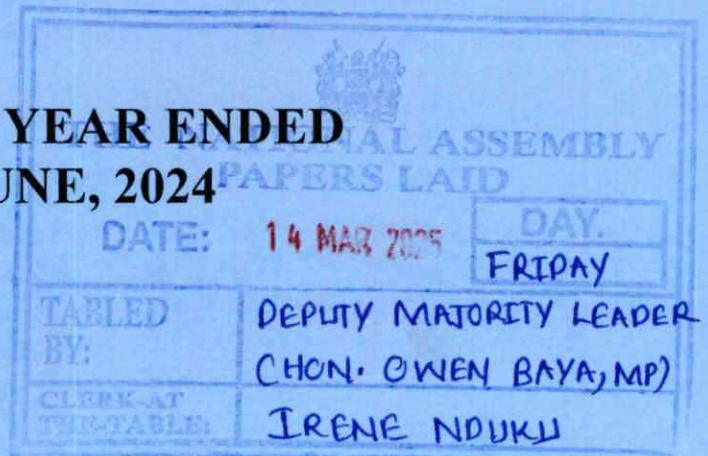 YEAR ENDED
UNE, 2024
THE NATIONAL ASSEMBLY
PAPERS LAID
DATE: 14 MAR 2025 DAY.
FRIDAY
TABLED BY: DEPUTY MAJORITY LEADER
(HON. OWEN BAYA, MP)
CLERK-AT THE-TABLE: IRENE NDUKU